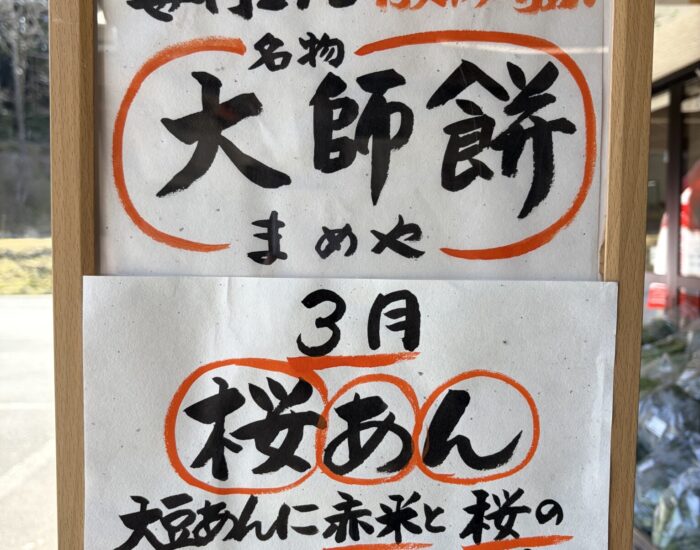 名物
大師餅
まめや
3月
桜あん
大豆あんに赤米と桜の